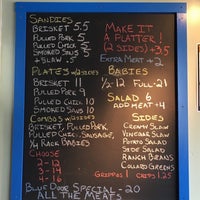 SANDIES
BRISKET 5.5
PULLED PORK 5
PULLED CHICK 5
SMOKED SAUS 5
+ SLAW .5
MAKE IT
A PLATTER!
(2 SIDES) +3.5
EXTRA MEAT +2
PLATES W/2 SIDES
BRISKET 11
PULLED PORK 9
PULLED CHICK 10
SMOKED SAUS 10
BABIES
1/2 12 FULL -20
SALAD 6
ADD MEAT +4
COMBOS W/2 SIDES
BRISKET, PULLED PORK,
PULLED CHICK, SAUSAGE,
1/4 RACK BABIES
CHOOSE
2 - 12
3 - 14
4 - 16
SIDES
CREAMY SLAW
VINEGAR SLAW
POTATO SALAD
SIDE SALAD
RANCH BEANS
COLLARD GREENS
CRISPS 1.25
BLUE DOOR SPECIAL - 20
ALL THE MEATS